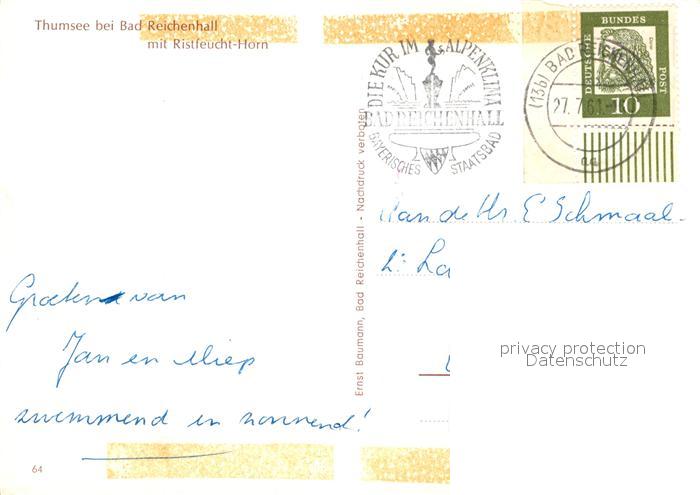 Thumsee bei Bad Reichenhall
mit Ristfeucht-Horn
DIE KUR IM ALPENKLIMA
BAD REICHENHALL
BAYERISCHES STAATSBAD
(13b) BAD REICHENHALL
27.7.61
aa
DEUTSCHE BUNDES POST
10
Ernst Baumann, Bad Reichenhall - Nachdruck verboten
Aan de Hr. E Schmaal-
Groeten van
Jan en Miep
zwemmend en zonnend!
privacy protection
Datenschutz
64